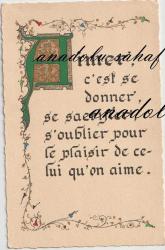 Aimer
c'est se
donner,
se sacrifier
s'oublier pour
le plaisir de ce-
lui qu'on aime.
anadolu sahaf
anadolu